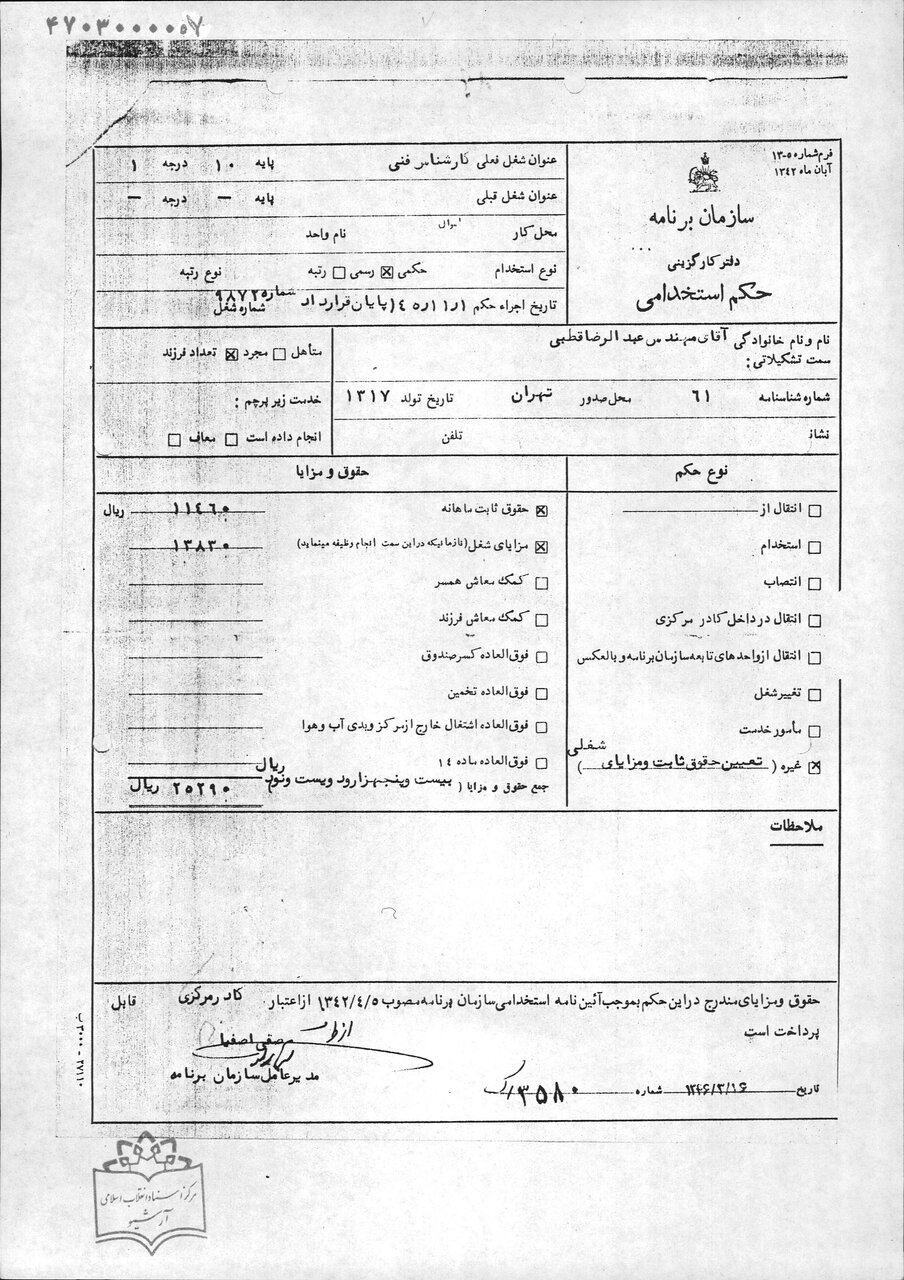 ۴۷۰۳۰۰۰۰۰۵۷
فرم شماره ۵-۱۳
آبان ماه ۱۳۴۲
سازمان برنامه
دفتر کارگزینی
حکم استخدامی
عنوان شغل فعلی کارشناس فنی پایه ۱۰ درجه ۱
عنوان شغل قبلی پایه — درجه —
محل کار اموال نام واحد
نوع استخدام حکمی ☒ رسمی ☐ رتبه نوع رتبه
تاریخ اجراء حکم ۱ر۱۱ر۴۵ پایان قرارداد شماره ۹۸۷۲۵
شماره شغل
نام و نام خانوادگی آقای مهندس عبدالرضا قطبی
سمت تشکیلاتی:
شماره شناسنامه ۶۱ محل صدور تهران تاریخ تولد ۱۳۱۷
نشانی تلفن
متأهل ☐ مجرد ☒ تعداد فرزند
خدمت زیر پرچم :
انجام داده است ☐ معاف ☐
نوع حکم
☐ انتقال از
☐ استخدام
☐ انتصاب
☐ انتقال در داخل کادر مرکزی
☐ انتقال از واحدهای تابعه سازمان برنامه و بالعکس
☐ تغییر شغل
☐ مأمور خدمت
☒ غیره ( تعیین حقوق ثابت ومزایای شغلی )
حقوق و مزایا
☒ حقوق ثابت ماهانه ۱۱۴۶۰ ریال
☒ مزایای شغل (تازمانیکه دراین سمت انجام وظیفه مینماید) ۱۳۸۳۰
☐ کمک معاش همسر
☐ کمک معاش فرزند
☐ فوق‌العاده کسر صندوق
☐ فوق‌العاده تخمین
☐ فوق‌العاده اشتغال خارج از مرکز وبدی آب وهوا
☐ فوق‌العاده ماده ۱۴
جمع حقوق و مزایا ( بیست وپنجهزارود ویست ونود ریال ۲۵۲۹۰ ریال
ملاحظات
حقوق ومزایای مندرج دراین حکم بموجب آئین نامه استخدامی سازمان برنامه مصوب ۱۳۴۲/۴/۵ از اعتبار کادرمرکزی قابل
پرداخت است
از طرف صفی اصفیاء
مدیرعامل سازمان برنامه
تاریخ ۱۳۴۶/۳/۱۶ شماره ۳۵۸۰
۲۷۱۱۰ - ۳۰۰۰ ب
مرکز اسناد انقلاب اسلامی
آرشیو